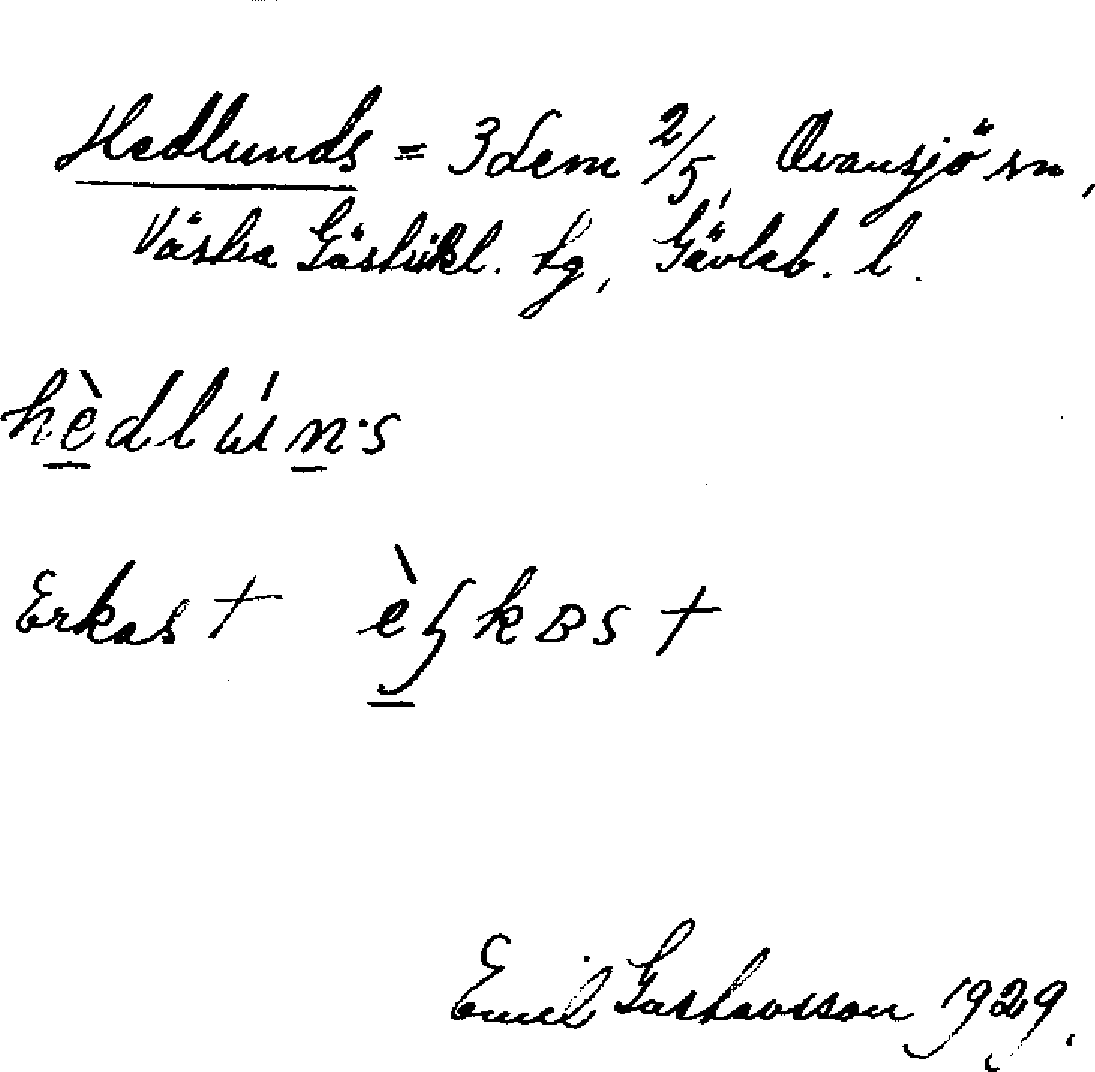 Hedlunds = 3 dem 2/5, Ovansjö sn,
Västra Gästrikl. tg, Gävleb. l.
hèdlún·s
Erkas +
Emil Gustavsson 1929.